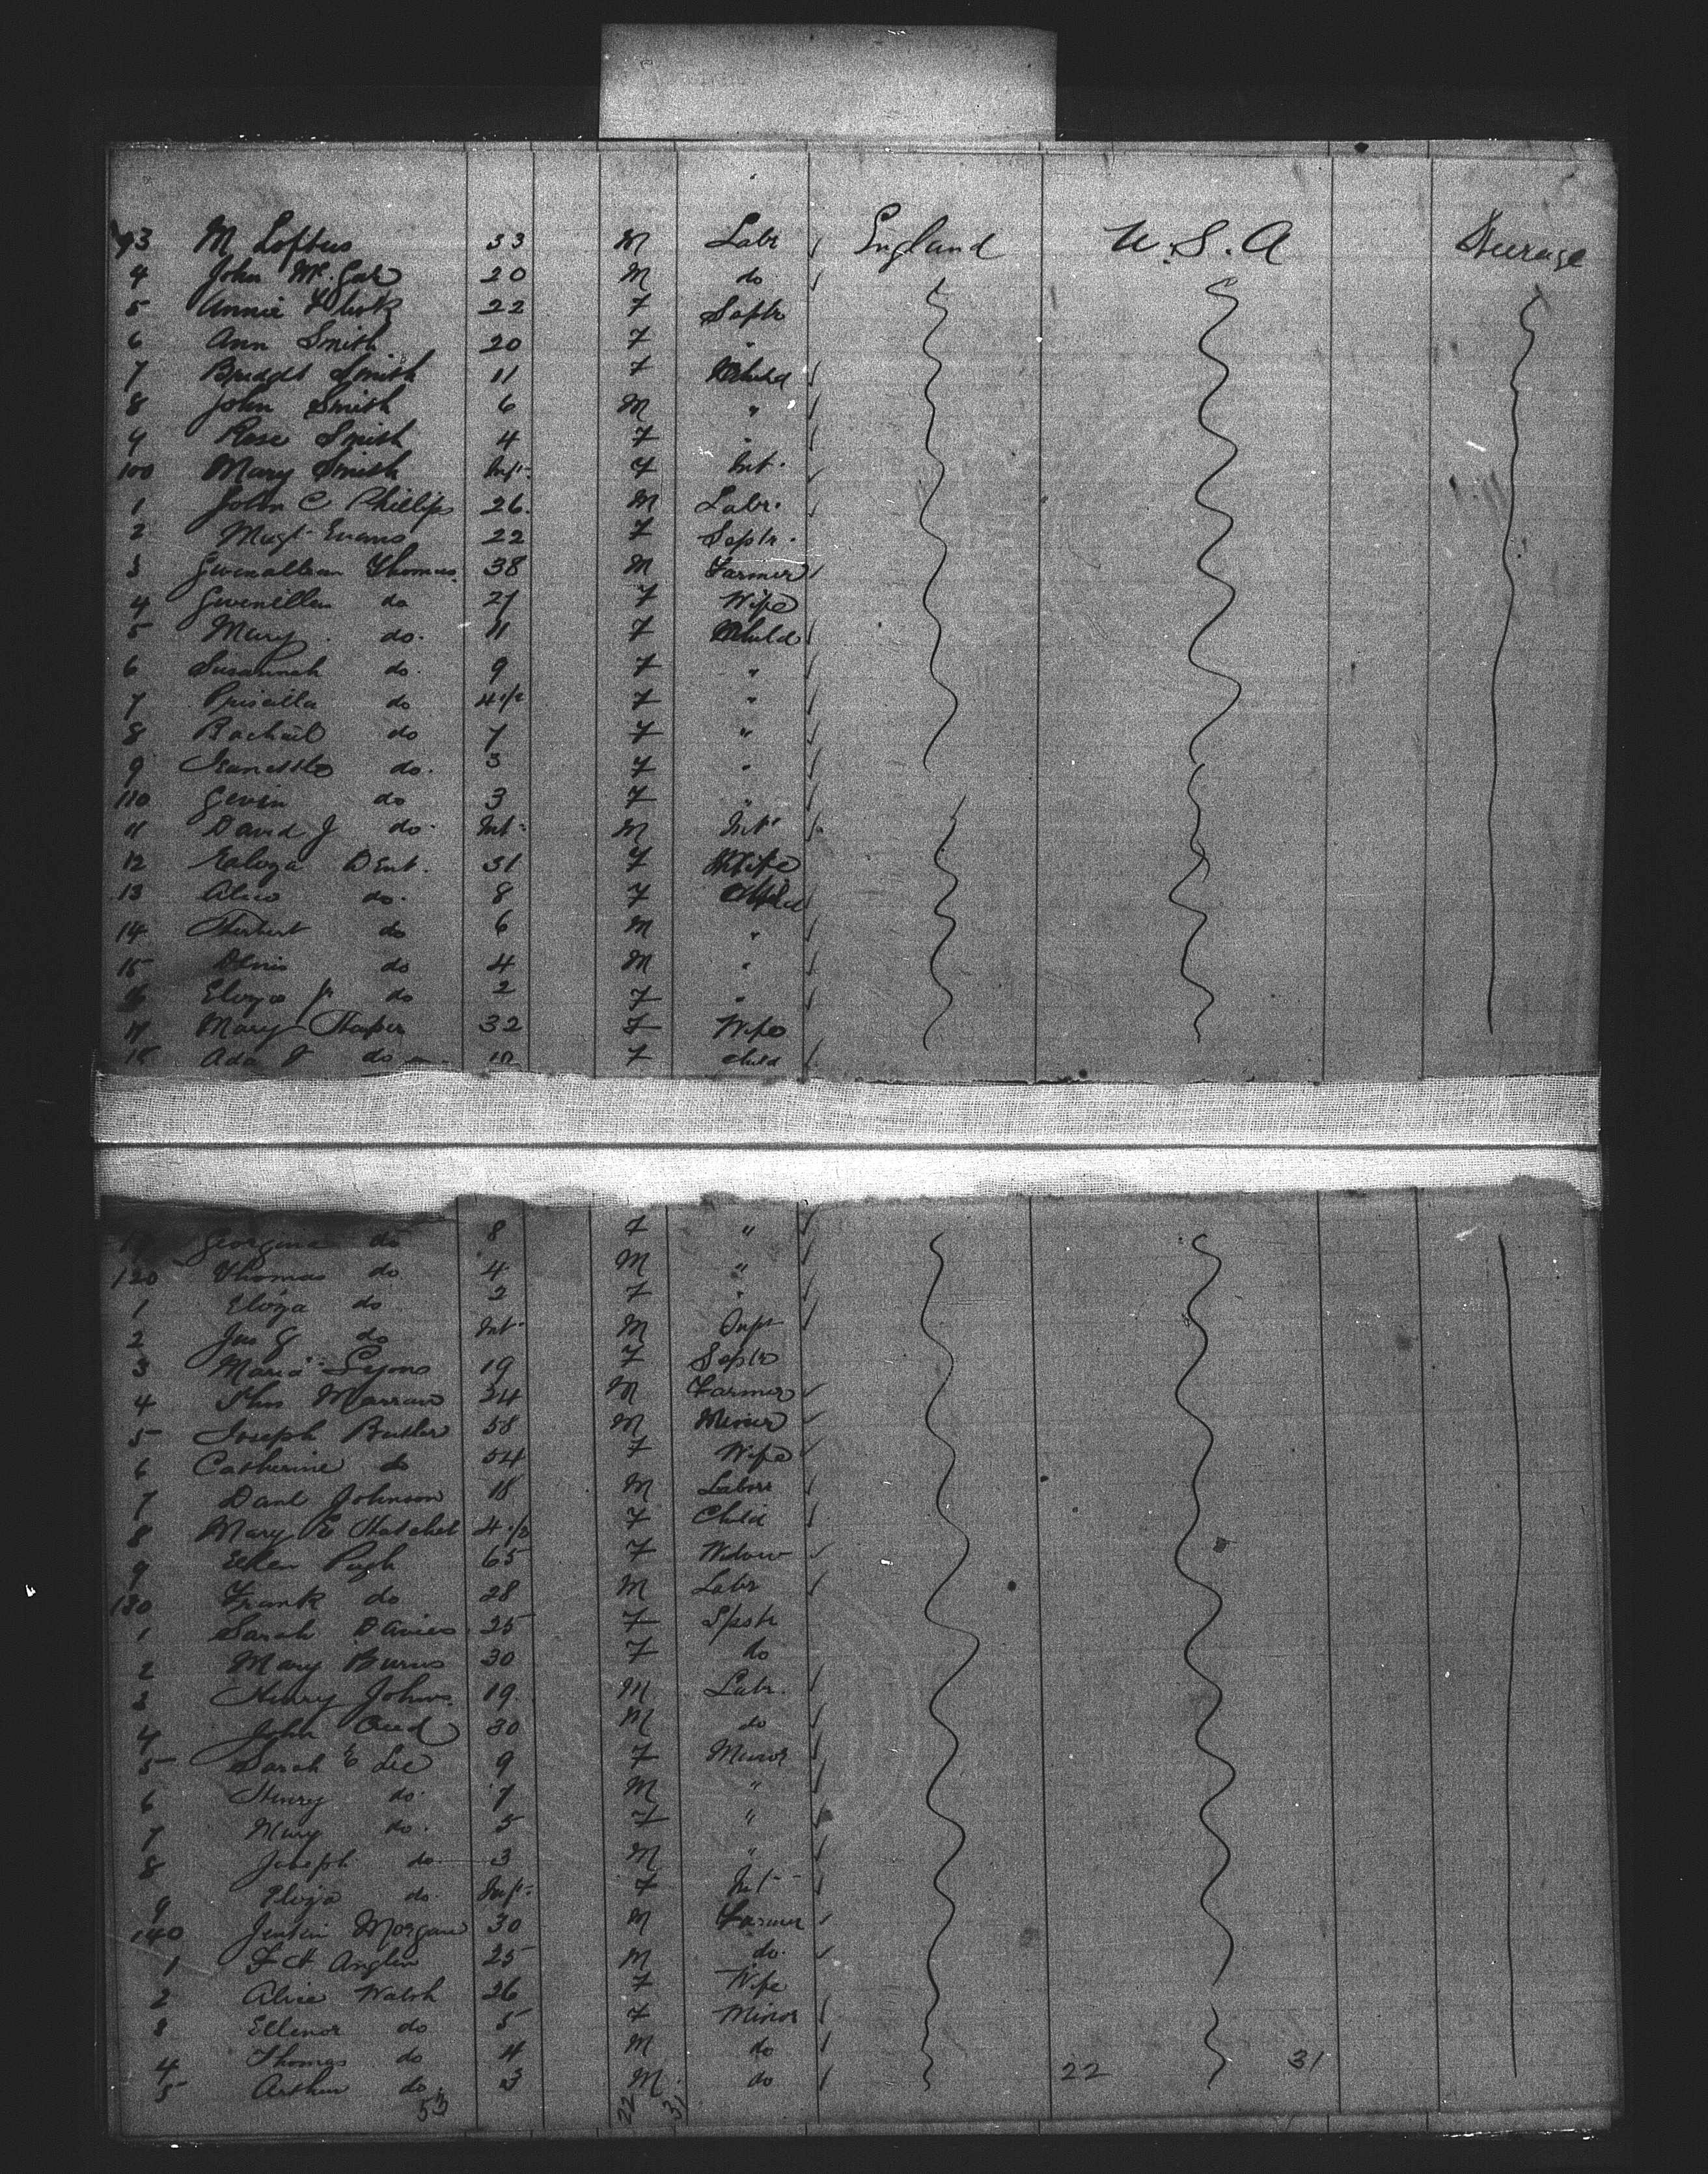 93 M Loftus 33 M Labr England U.S.A Steerage
4 John Mc 20 M do
5 Annie 22 F Spstr
6 Ann Smith 20 F "
7 Bridget Smith 11 F Child
8 John Smith 6 M "
9 Rose Smith 4 F "
100 Mary Smith Inft. F Inft.
1 John C Phillips 26. M Labr.
2 Magt Evans 22 F Spstr.
3 Thomas 38 M Farmer
4 Gwenllian do 27 F Wife
5 Mary do. 11 F Child
6 Susannah do. 9 F "
7 Priscilla do 4 1/2 F "
8 Rachael do 7 F "
9 do. 3 F "
110 do 3 F "
11 David J do. Inft. M Inft
12 Dent. 31 F Wife
13 Alice do. 8 F Child
14 Herbert do 6 M "
15 do 4 M "
16 do 2 F "
17 Mary Harper 32 F Wife
18 Ada J do 10 F Child
19 Georgina do 8 F "
120 Thomas do 4 M "
1 Eliza do 2 F "
2 do Inft. M Inft
3 Maria Lyons 19 F Spstr
4 34 M Farmer
5 Joseph Butler 58 M Miner
6 Catherine do 54 F Wife
7 Danl Johnson 18 M Labour
8 Mary E Hatchet 4 1/2 F Child
9 Ellen Pugh 65 F Widow
130 Frank do 28 M Labr
1 Sarah Davies 25 F Spstr
2 Mary Burns 30 F do
3 Henry Johns. 19. M Labr.
4 John 30 M do
5 Sarah E Lee 9 F Minor
6 Henry do. 7 M "
7 Mary do. 5 F "
8 Joseph do 3 M "
9 Eliza do. Inft. F Inft
140 Jenkin Morgan 30 M Farmer
1 F H Anglin 25 M do.
2 Alice Walsh 26 F Wife
3 Ellenor do 5 F Minor
4 Thomas do 4 M do
5 Arthur do 3 M. do 22 31
53 22 31